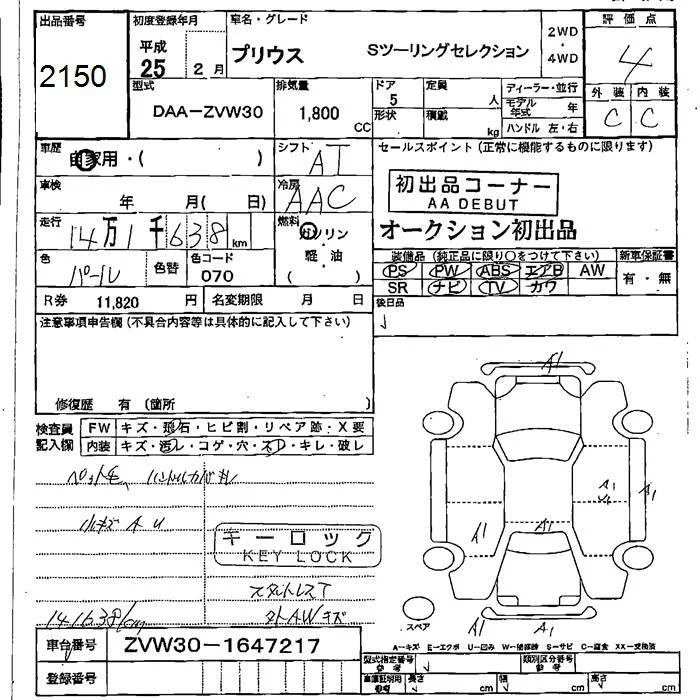 出品番号
2150
初度登録年月
平成
25 2月
車名・グレード
プリウス Sツーリングセレクション
2WD
・
4WD
評価点
4
型式
DAA-ZVW30
排気量
1,800
CC
ドア
5
形状
定員
人
積載
kg
ディーラー・並行
モデル年式 年
ハンドル 左・右
外装 内装
C C
車歴
自家用・( )
シフト
AT
車検
年 月( 日)
冷房
AAC
走行
14万1千638 km
燃料
ガソリン
・
軽油
( )
色
パール
色替
色コード
070
R券 11,820 円
名変期限 月 日
セールスポイント (正常に機能するものに限ります)
初出品コーナー
AA DEBUT
オークション初出品
装備品 (純正品に限り○をつけて下さい)
新車保証書
PS PW ABS エアB AW
有・無
SR ナビ TV カワ
後日品
注意事項申告欄 (不具合内容等は具体的に記入して下さい)
修復歴 有 (箇所 )
検査員
記入欄
FW キズ・飛石・ヒビ割・リペア跡・X要
内装 キズ・汚レ・コゲ・穴・スレ・キレ・破レ
小キズ A U
キーロック
KEY LOCK
スタットレスT
タトAWキズ
141638/km
A1
A1
A1
A1
A1
A1
A1
スペア
A-キズ E-エクボ U-凹み W-補修跡 S-サビ C-腐食 XX-交換済
車台番号 ZVW30-1647217
登録番号
型式指定番号
参考
類別区分番号
参考
長さ cm 幅 cm 高さ cm